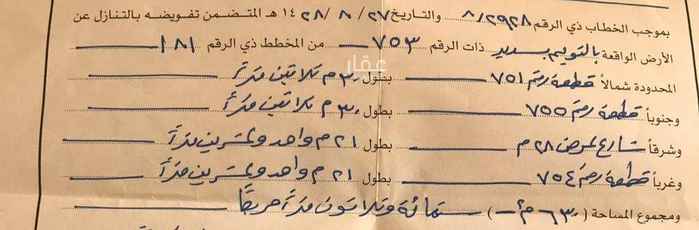 بموجب الخطاب ذي الرقم ٨/٢٩٢٨ والتاريخ ٢٧ / ٨ / ١٤٢٨ هـ المتضمن تفويضه بالتنازل عن
الأرض الواقعة بالتويم بسدير ذات الرقم ٧٥٣ من المخطط ذي الرقم ١٨١
عقار
المحدودة شمالاً قطعة رقم ٧٥١ بطول ٣٠م ثلاثين متراً
وجنوباً قطعة رقم ٧٥٥ بطول ٣٠م ثلاثين متراً
وشرقاً شارع عرض ٢٨م بطول ٢١م واحد وعشرين متراً
وغرباً قطعة رقم ٧٥٤ بطول ٢١م واحد وعشرين متراً
ومجموع المساحة (٦٣٠م٢) ستمائة وثلاثون متراً مربعاً